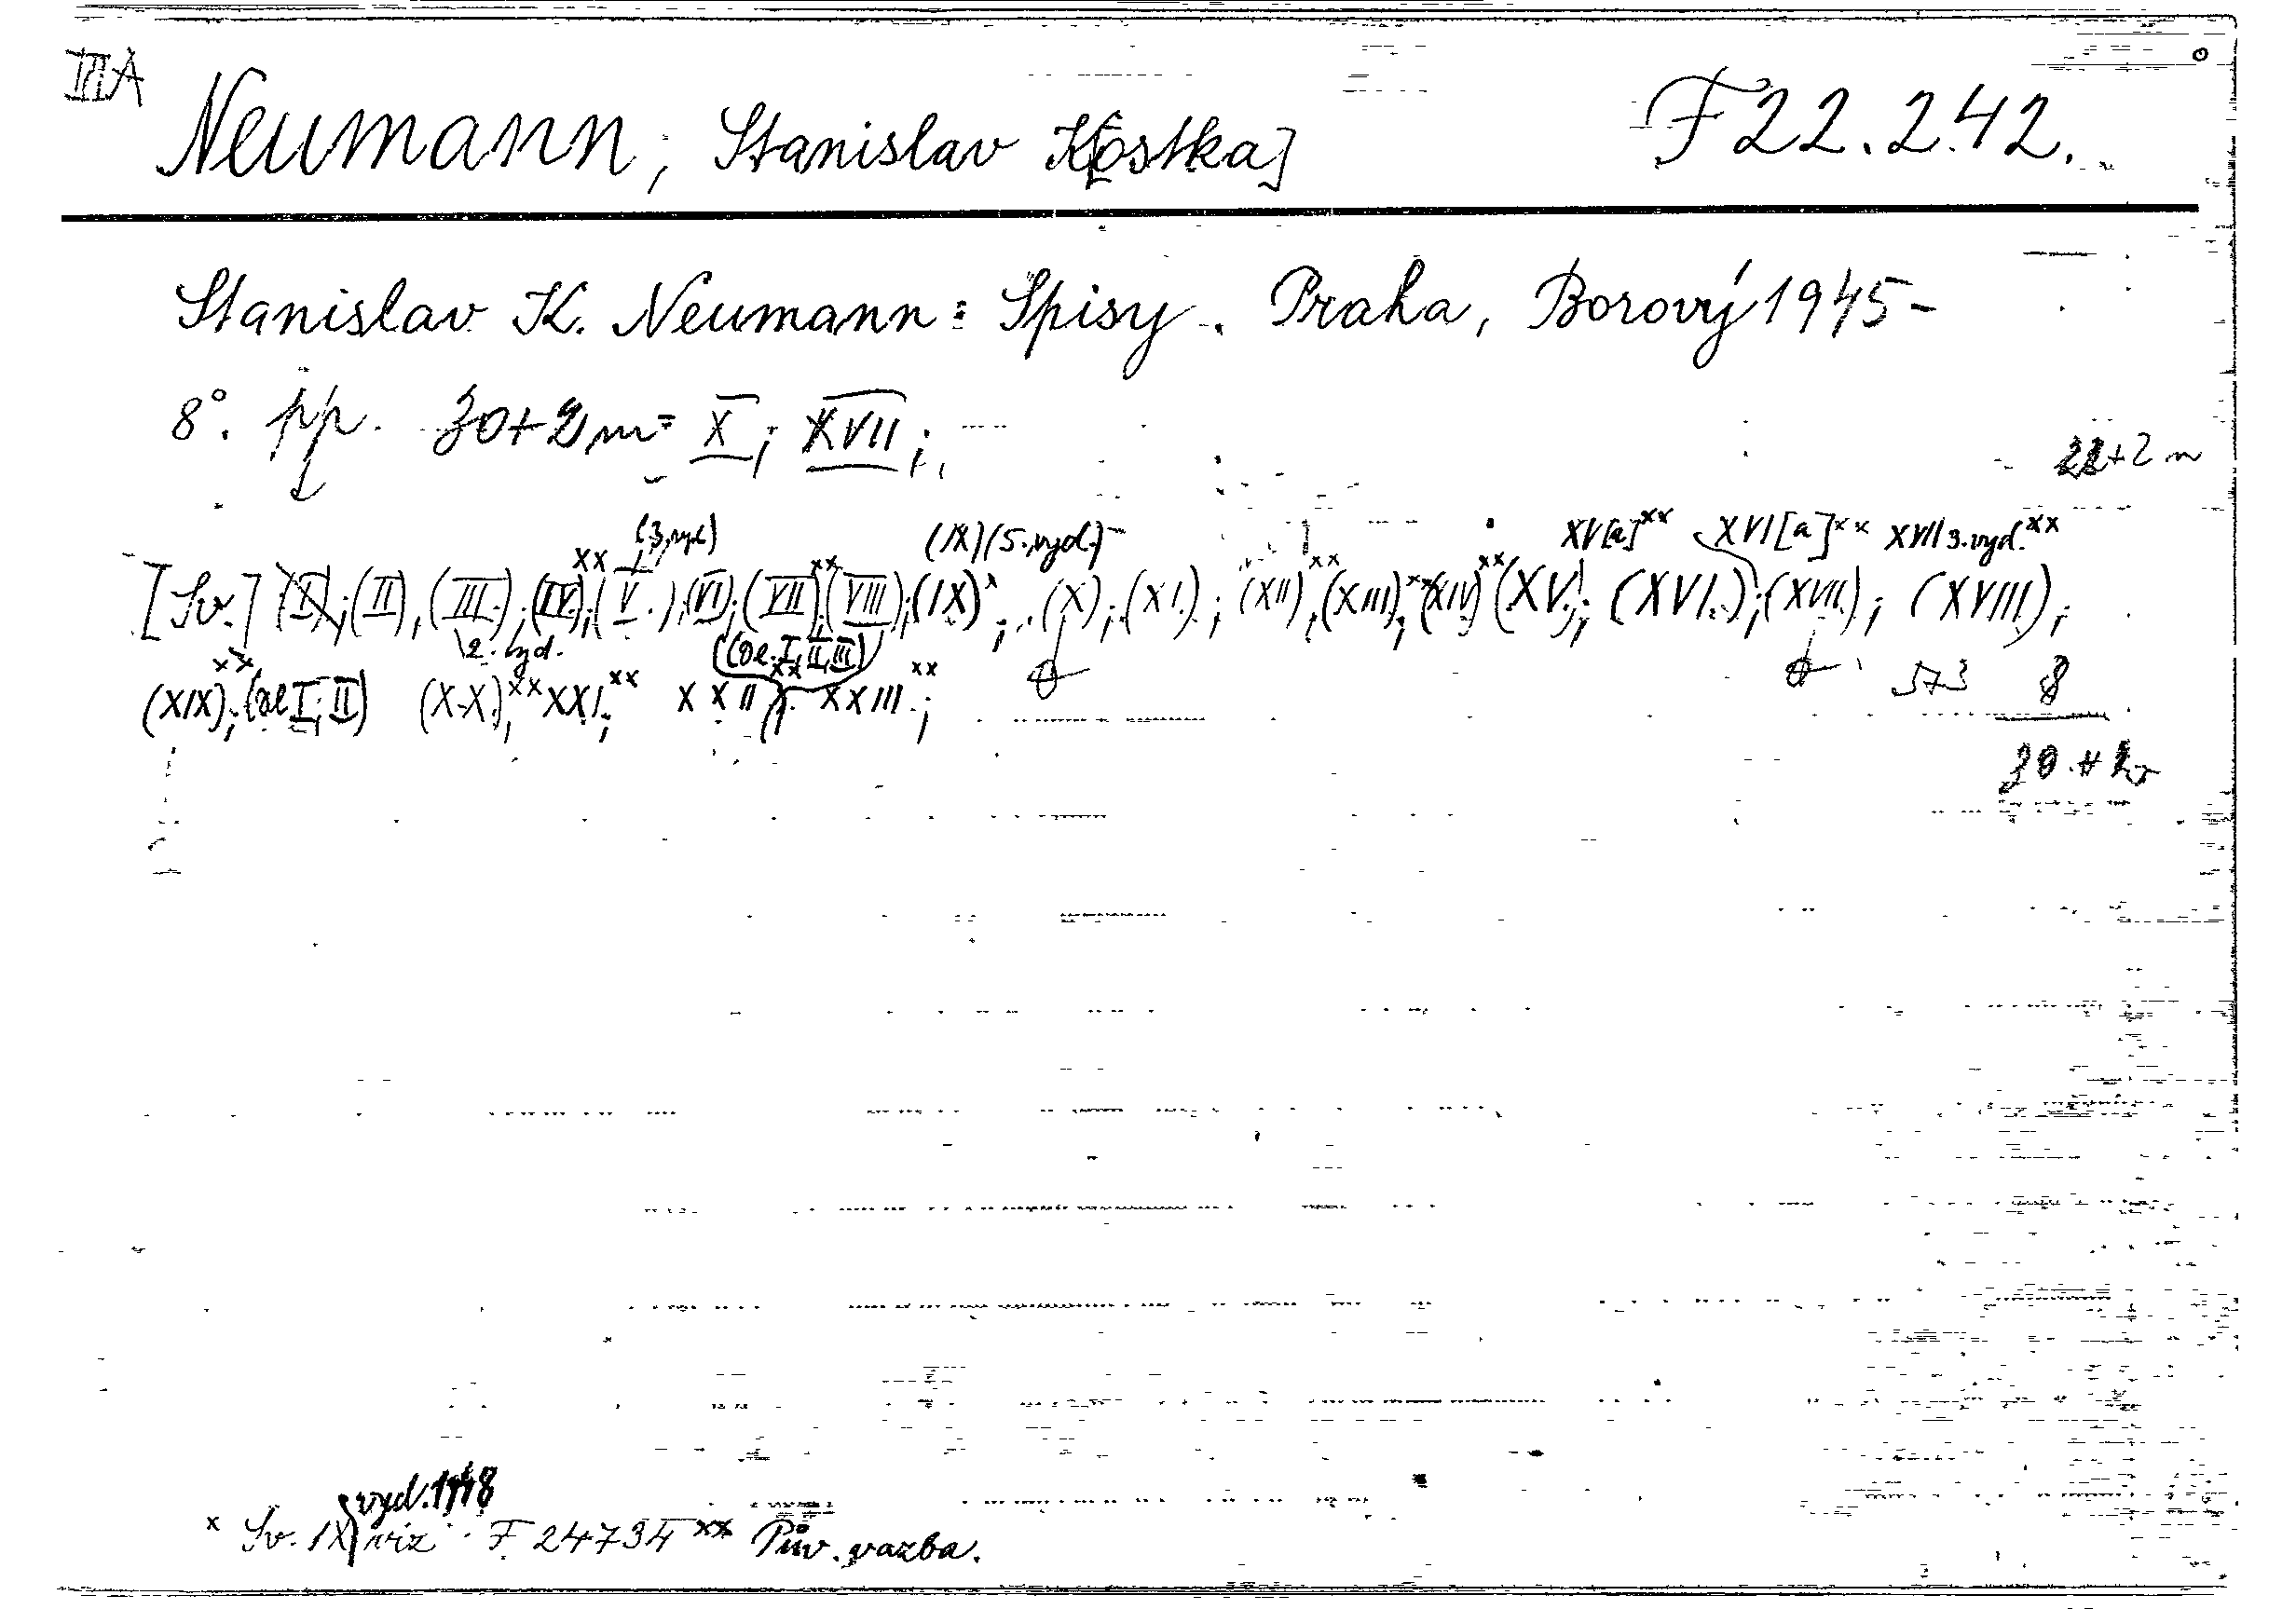 IIA
Neumann, Stanislav K[ostka] F 22.242.
Stanislav K. Neumann: Spisy. Praha, Borový 1945-
8°. pp. 30+2m= X; XVII;
22+2 m
(3.vyd) (IX)(5.vyd.) XV[a]xx XVI[a]xx XVII 3.vyd.xx
[Sv.] (I); (II), (III.); (IV.)xx; (V.); (VI); (VII)xx; (VIII); (IX)x; (X); (XI.); (XII)xx, (XIII)xx; (XIV)xx (XV); (XVI.); (XVII.); (XVIII);
2. vyd. (Dl. I, II, III)
(XIX)xx; (dl I; II) (XX)xx, XXI.xx; XXII xx; XXIII.xx; 573 8
vyd. 1948
x Sv. IX viz F 24734 xx Pův. vazba.